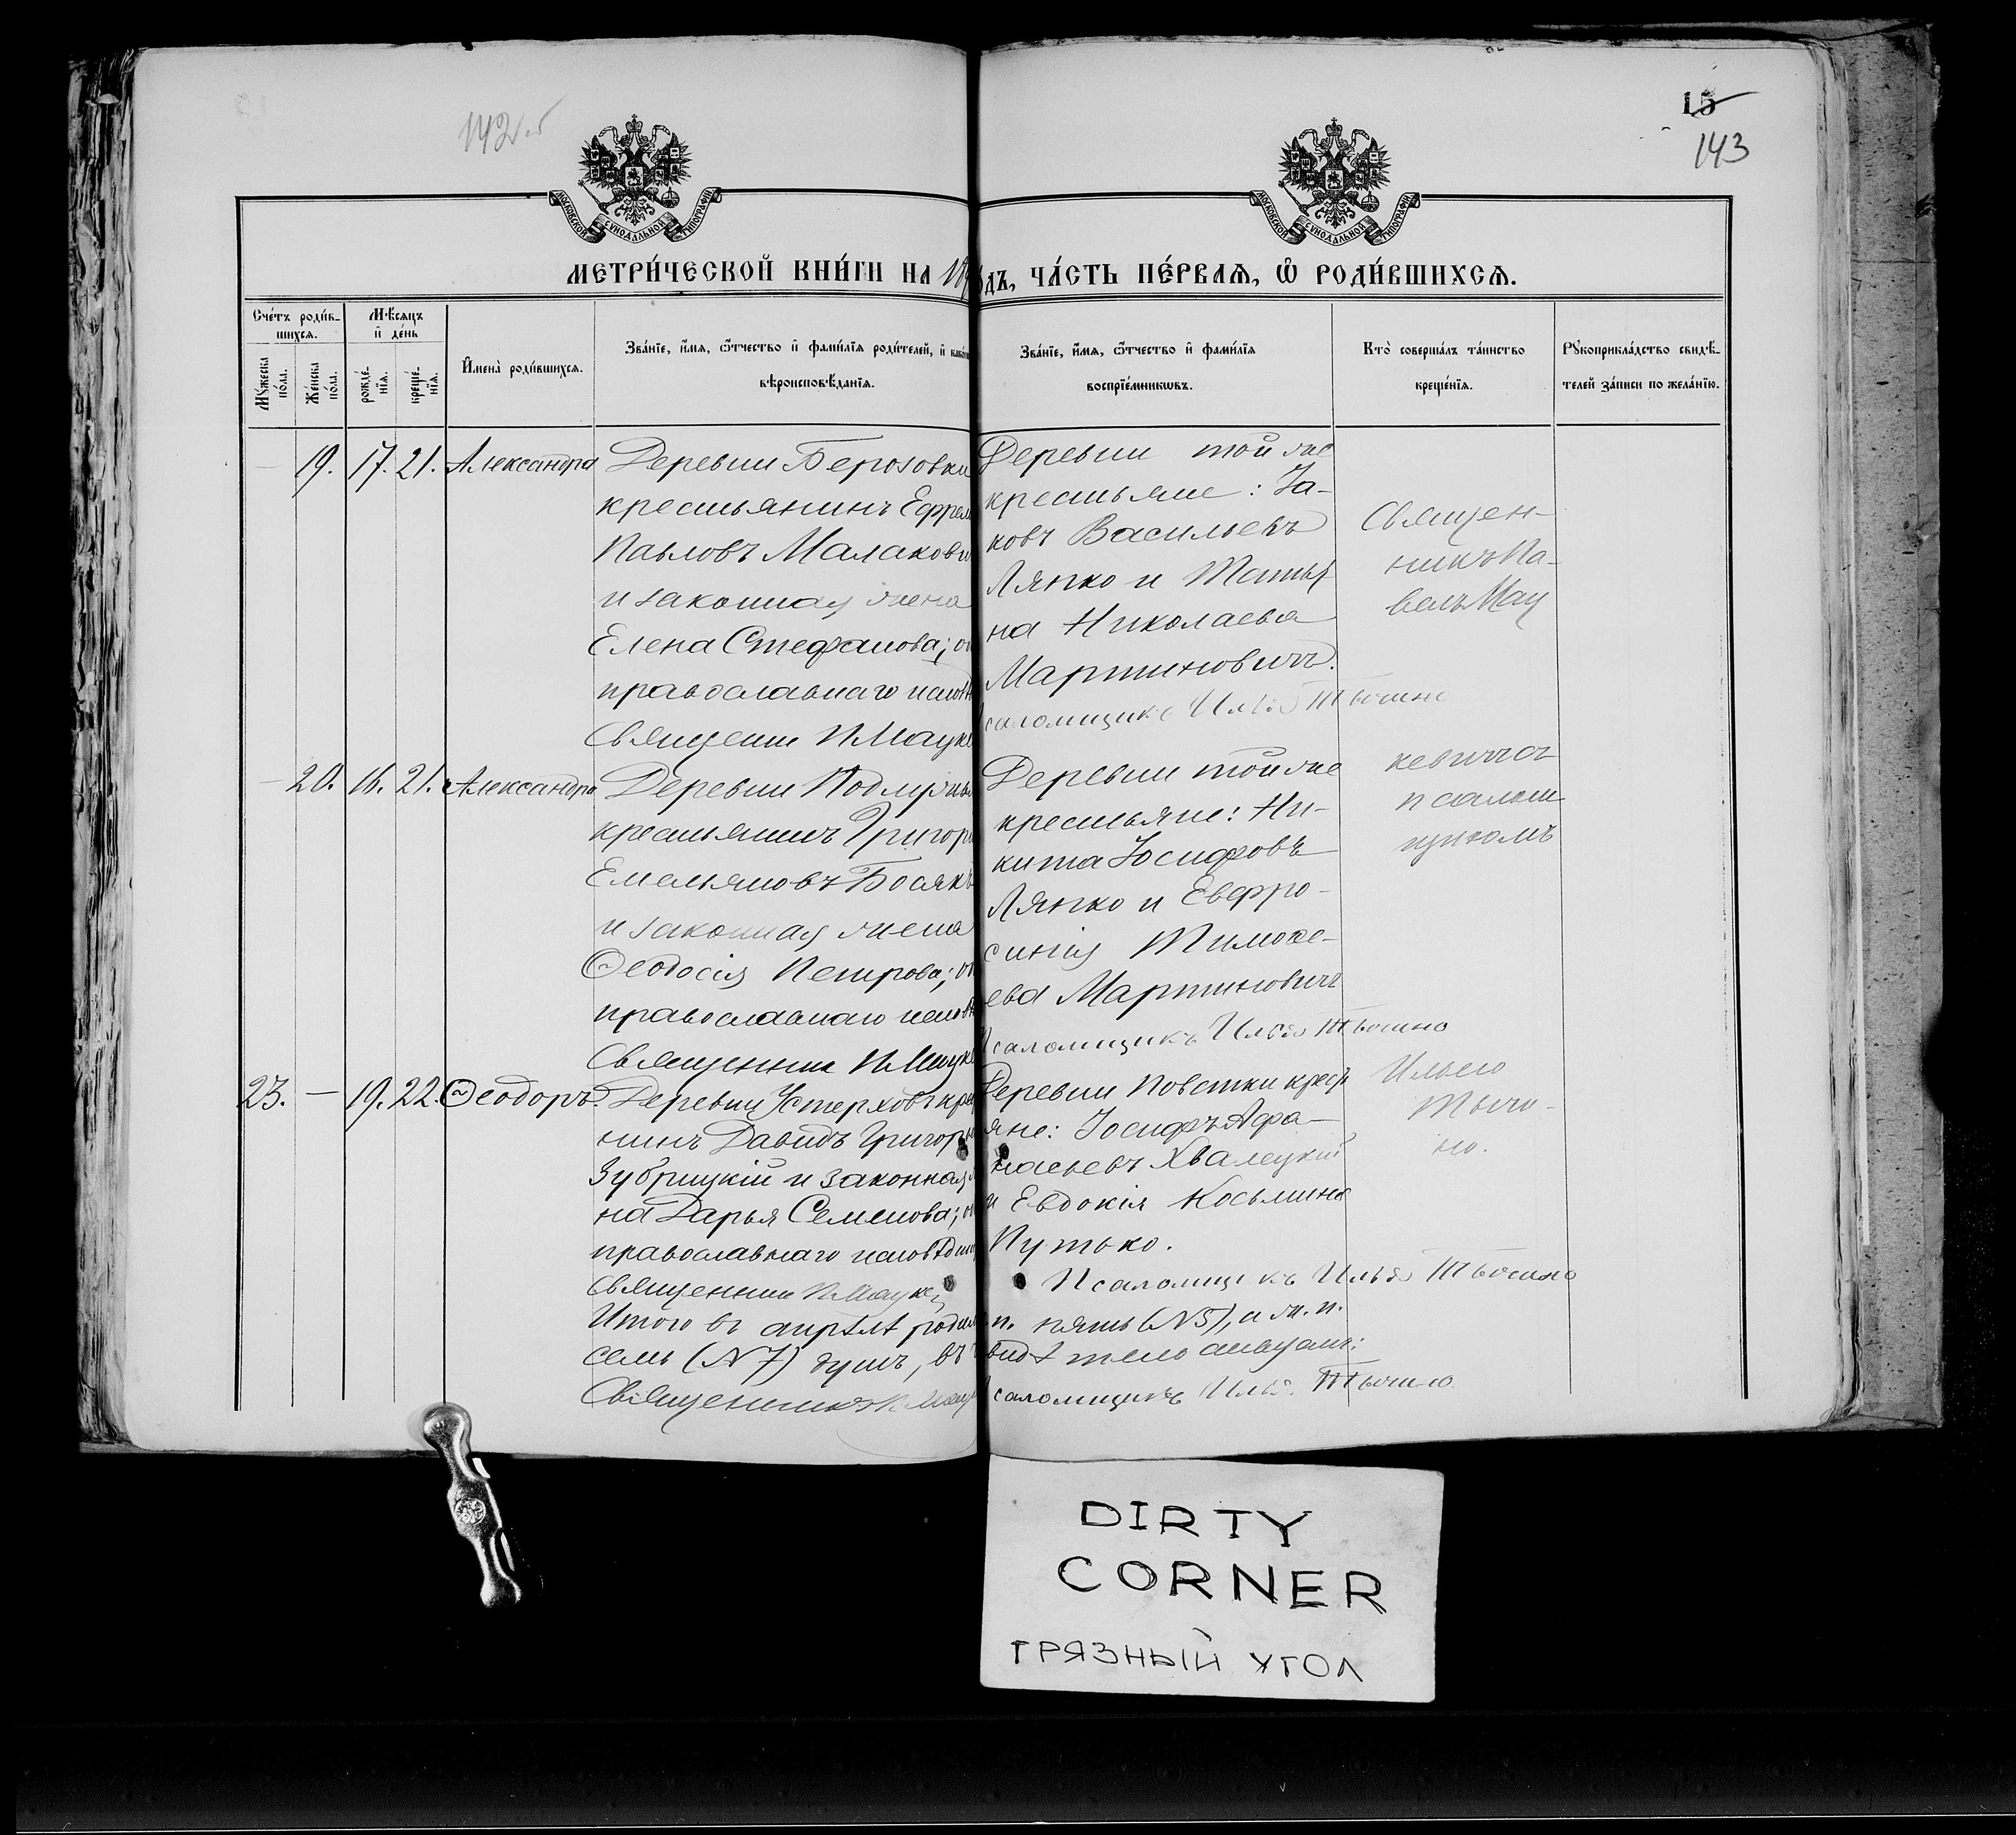 142 об
15
143
МОСКОВСКОЙ СѴНОДАЛЬНОЙ ТИПОГРАФІИ
МОСКОВСКОЙ СѴНОДАЛЬНОЙ ТИПОГРАФІИ
МЕТРИ́ЧЕСКОЙ КНИ́ГИ НА 18 ДЪ, ЧА́СТЬ ПЕ́РВАѦ, Ѡ҆ РОДИ́ВШИХСѦ.
Сче́тъ роди́в-
шихсѧ.
Мѣ́сѧцъ
и҆ де́нь
Мꙋ́жеска по́ла.
Же́нска по́ла.
рожде́-
нїѧ.
креще́-
нїѧ.
И҆мена̀ роди́вшихсѧ.
Зва́нїе, и҆́мѧ, ѻ҆́тчество и҆ фами́лїѧ роди́телей, и҆
вѣроисповѣ́данїѧ.
Зва́нїе, и҆́мѧ, ѻ҆́тчество и҆ фами́лїѧ
воспрїе́мникѡвъ.
Кто̀ соверша́лъ та́инство
креще́нїѧ.
Рꙋкоприкла́дство свидѣ́-
телей за́писи по жела́нїю.
— 19. 17. 21. Александра
Деревни Березовки
крестьянинъ Ефрем
Павловъ Малакови
и законная жена
Елена Стефанова; о
православнаго испов
Священник П Мацке
Деревни той же
крестьяне: Іа-
ковъ Васильевъ
Ляпко и Татья
на Николаева
Мартиновичъ.
саломщикъ Илья Тычино
Священ-
никъ Па-
велъ Мац
— 20. 16. 21. Александра
Деревни
крестьянинъ Григор
Емельяновъ Босякъ
и законная жена
Ѳеодосія Петрова; о
православнаго испов
Священник П Мацке
Деревни той же
крестьяне: Ни-
кита Іосифовъ
Ляпко и Евфро-
синія Тимоѳе-
ева Мартиновичъ
саломщикъ Илья Тычино
кевичъ съ
псалом
щикомъ
23. — 19. 22. Ѳеодоръ.
Деревни Устерховъ кре
нинъ Давидъ Григорь
Зубрицкій и законная
на Дарья Семенова; о
православнаго исповѣдан
Священник П Мацке
Деревни Повстки крест
яне: Іосифъ Афа-
насьевъ Хвалецкій
и Евдокія Косьмина
Путько.
Псаломщикъ Илья Тычино
Ильею
Тычи-
но.
Итого въ апрѣлѣ родил
семь (№7) душъ, въ
Священникъ П. Мац
п. пять (№5), а ж. п.
саломщикъ Илья Тычино
DIRTY
CORNER
ГРЯЗНЫЙ УГОЛ